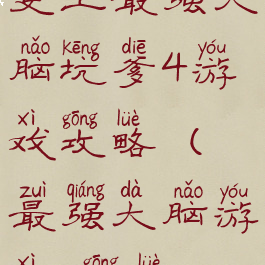 史上最强大
nǎo kēng diē yóu
脑坑爹4游
xì gōng lüè
戏攻略（
zuì qiáng dà nǎo yóu
最强大脑游
xì gōng lüè